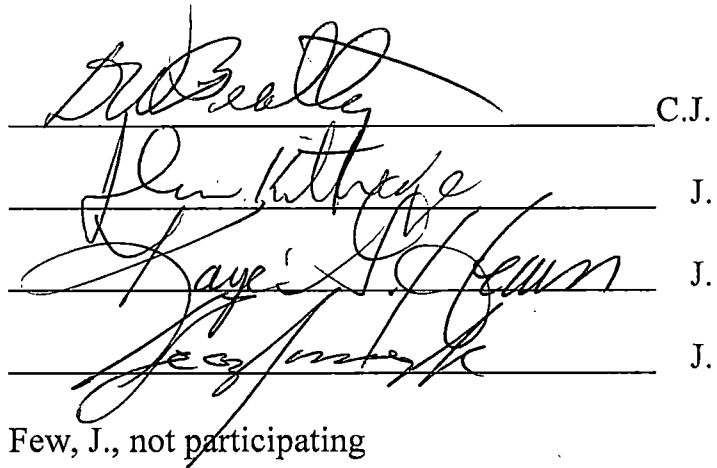 DW Beatty C.J.
John Kittredge J.
Kaye G. Hearn J.
J.
Few, J., not participating